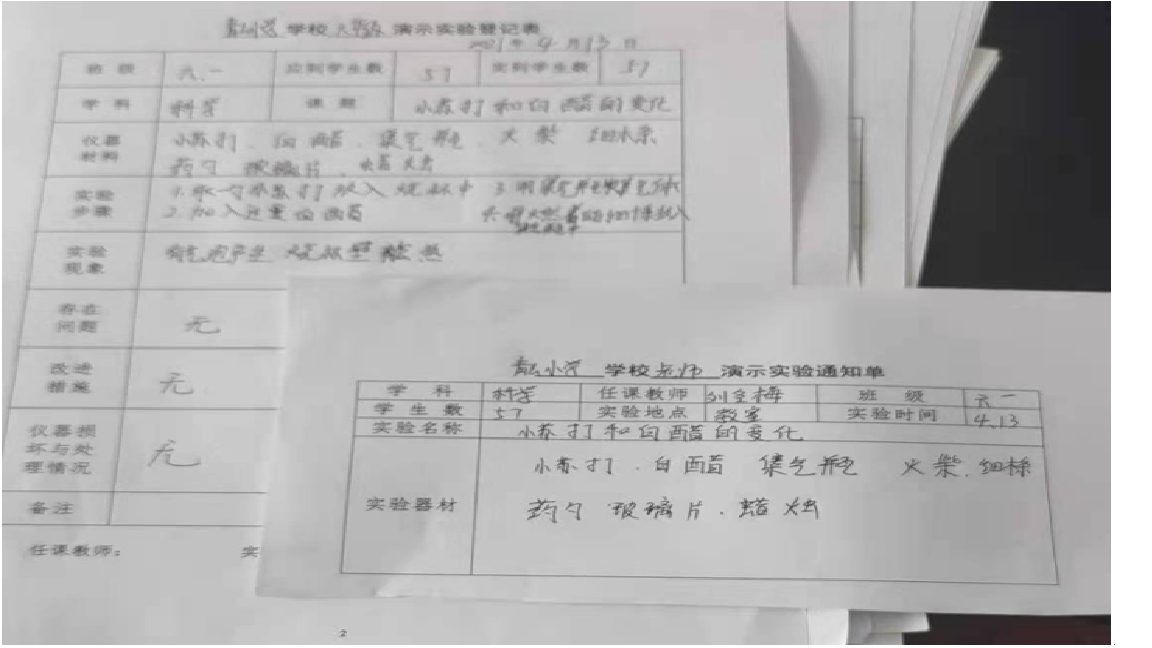 学校 演示实验登记表
2021年4月13日
班级 六.一 应到学生数 57 实到学生数 57
学科 科学 课题 小苏打和白醋的变化
仪器材料 小苏打、白醋、集气瓶、火柴
药勺 玻璃片、蜡烛
实验步骤 1.取一勺小苏打放入烧杯中 3.用
2.加入适量白醋
实验现象
存在问题 无
改进措施 无
仪器损坏与处理情况 无
备注
任课教师: 实
2
小学 学校 老师 演示实验通知单
学科 科学 任课教师 班级 六一
学生数 57 实验地点 教室 实验时间 4.13
实验名称 小苏打和白醋的变化
实验器材 小苏打、白醋 集气瓶 火柴、细
药勺 玻璃片、蜡烛